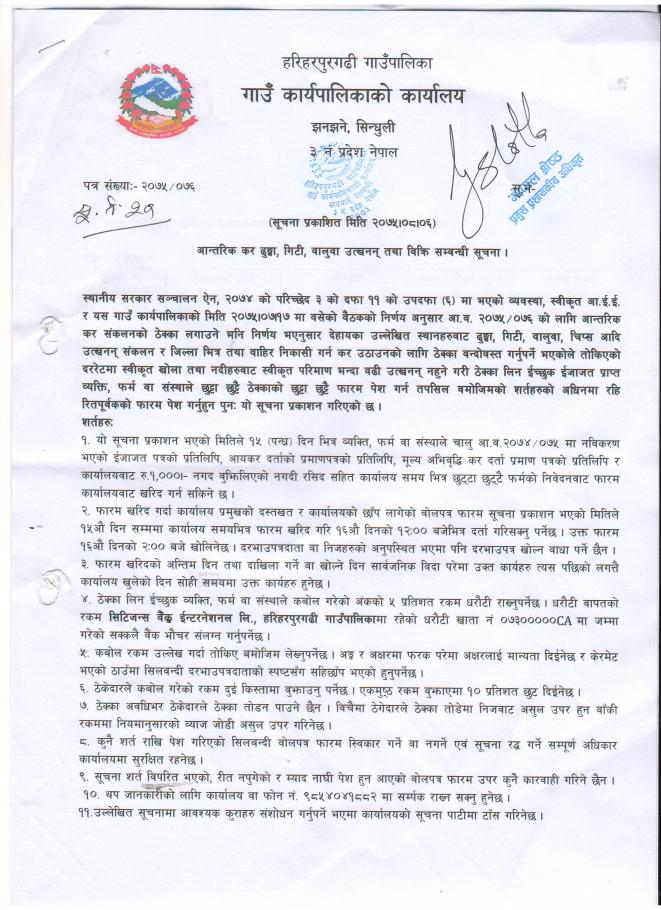 हरिहरपुरगढी गाउँपालिका
गाउँ कार्यपालिकाको कार्यालय
झनझने, सिन्धुली
३ नं प्रदेश नेपाल
पत्र संख्याः- २०७५/०७६
प्रमुख प्रशासकीय अधिकृत
(सूचना प्रकाशित मिति २०७५।०८।०६)
आन्तरिक कर ढुङ्गा, गिटी, वालुवा उत्खनन् तथा विक्रि सम्वन्धी सूचना ।
स्थानीय सरकार सञ्चालन ऐन, २०७४ को परिच्छेद ३ को दफा ११ को उपदफा (६) मा भएको व्यवस्था, स्वीकृत आ.ई.ई.
र यस गाउँ कार्यपालिकाको मिति २०७५।०७।१७ मा वसेको वैठकको निर्णय अनुसार आ.व. २०७५/०७६ को लागि आन्तरिक
कर संकलनको ठेक्का लगाउने भनि निर्णय भएनुसार देहायका उल्लेखित स्थानहरुवाट ढुङ्गा, गिटी, वालुवा, चिप्स आदि
उत्खनन् संकलन र जिल्ला भित्र तथा वाहिर निकासी गर्न कर उठाउनको लागि ठेक्का वन्दोवस्त गर्नुपर्ने भएकोले तोकिएको
दररेटमा स्वीकृत खोला तथा नदीहरुवाट स्वीकृत परिमाण भन्दा वढी उत्खनन् नहुने गरी ठेक्का लिन ईच्छुक ईजाजत प्राप्त
व्यक्ति, फर्म वा संस्थाले छुट्टा छुट्टै ठेक्काको छुट्टा छुट्टै फारम पेश गर्न तपसिल वमोजिमको शर्तहरुको अधिनमा रहि
रितपूर्वकको फारम पेश गर्नुहुन पुनः यो सूचना प्रकाशन गरिएको छ ।
शर्तहरुः
१. यो सूचना प्रकाशन भएको मितिले १५ (पन्ध्र) दिन भित्र व्यक्ति, फर्म वा संस्थाले चालु आ.व.२०७४/०७५ मा नविकरण
भएको ईजाजत पत्रको प्रतिलिपि, आयकर दर्ताको प्रमाणपत्रको प्रतिलिपि, मूल्य अभिवृद्धि कर दर्ता प्रमाण पत्रको प्रतिलिपि र
कार्यालयवाट रु.१,०००।- नगद वुझिलिएको नगदी रसिद सहित कार्यालय समय भित्र छुट्टा छुट्टै फर्मको निवेदनवाट फारम
कार्यालयवाट खरिद गर्न सकिने छ ।
२. फारम खरिद गर्दा कार्यालय प्रमुखको दस्तखत र कार्यालयको छाँप लागेको वोलपत्र फारम सूचना प्रकाशन भएको मितिले
१५औ दिन सम्ममा कार्यालय समयभित्र फारम खरिद गरि १६औ दिनको १२:०० बजेभित्र दर्ता गरिसक्नु पर्नेछ । उक्त फारम
१६औ दिनको २:०० बजे खोलिनेछ । दरभाउपत्रदाता वा निजहरुको अनुपस्थित भएमा पनि दरभाउपत्र खोल्न वाधा पर्ने छैन ।
३. फारम खरिदको अन्तिम दिन तथा दाखिला गर्ने वा खोल्ने दिन सार्वजनिक विदा परेमा उक्त कार्यहरु त्यस पछिको लगत्तै
कार्यालय खुलेको दिन सोही समयमा उक्त कार्यहरु हुनेछ ।
४. ठेक्का लिन ईच्छुक व्यक्ति, फर्म वा संस्थाले कबोल गरेको अंकको ५ प्रतिशत रकम धरौटी राख्नुपर्नेछ । धरौटी वापतको
रकम सिटिजन्स बैँङ्क ईन्टरनेशनल लि., हरिहरपुरगढी गाउँपालिकामा रहेको धरौटी खाता नं ०७३०००००CA मा जम्मा
गरेको सक्कलै बैंक भौचर संलग्न गर्नुपर्नेछ ।
५. कवोल रकम उल्लेख गर्दा तोकिए बमोजिम लेख्नुपर्नेछ । अङ्क र अक्षरमा फरक परेमा अक्षरलाई मान्यता दिईनेछ र केरमेट
भएको ठाउँमा सिलवन्दी दरभाउपत्रदाताको स्पष्टसँग सहिछाँप भएको हुनुपर्नेछ ।
६. ठेकेदारले कवोल गरेको रकम दुई किस्तामा बुझाउनु पर्नेछ । एकमुष्ठ रकम बुझाएमा १० प्रतिशत छुट दिईनेछ ।
७. ठेक्का अवधिभर ठेकेदारले ठेक्का तोडन पाउने छैन । विचैमा ठेगेदारले ठेक्का तोडेमा निजवाट असुल उपर हुन वाँकी
रकममा नियमानुसारको व्याज जोडी असुल उपर गरिनेछ ।
८. कुनै शर्त राखि पेश गरिएको सिलबन्दी वोलपत्र फारम स्विकार गर्ने वा नगर्ने एवं सूचना रद्ध गर्ने सम्पूर्ण अधिकार
कार्यालयमा सुरक्षित रहनेछ ।
९. सूचना शर्त विपरित भएको, रीत नपुगेको र म्याद नाघी पेश हुन आएको वोलपत्र फारम उपर कुनै कारवाही गरिने छैन ।
१०. थप जानकारीको लागि कार्यालय वा फोन नं. ९८५४०४१८८२ मा सर्म्पक राख्न सक्नु हुनेछ ।
११.उल्लेखित सूचनामा आवश्यक कुराहरु संशोधन गर्नुपर्ने भएमा कार्यालयको सूचना पाटीमा टाँस गरिनेछ ।